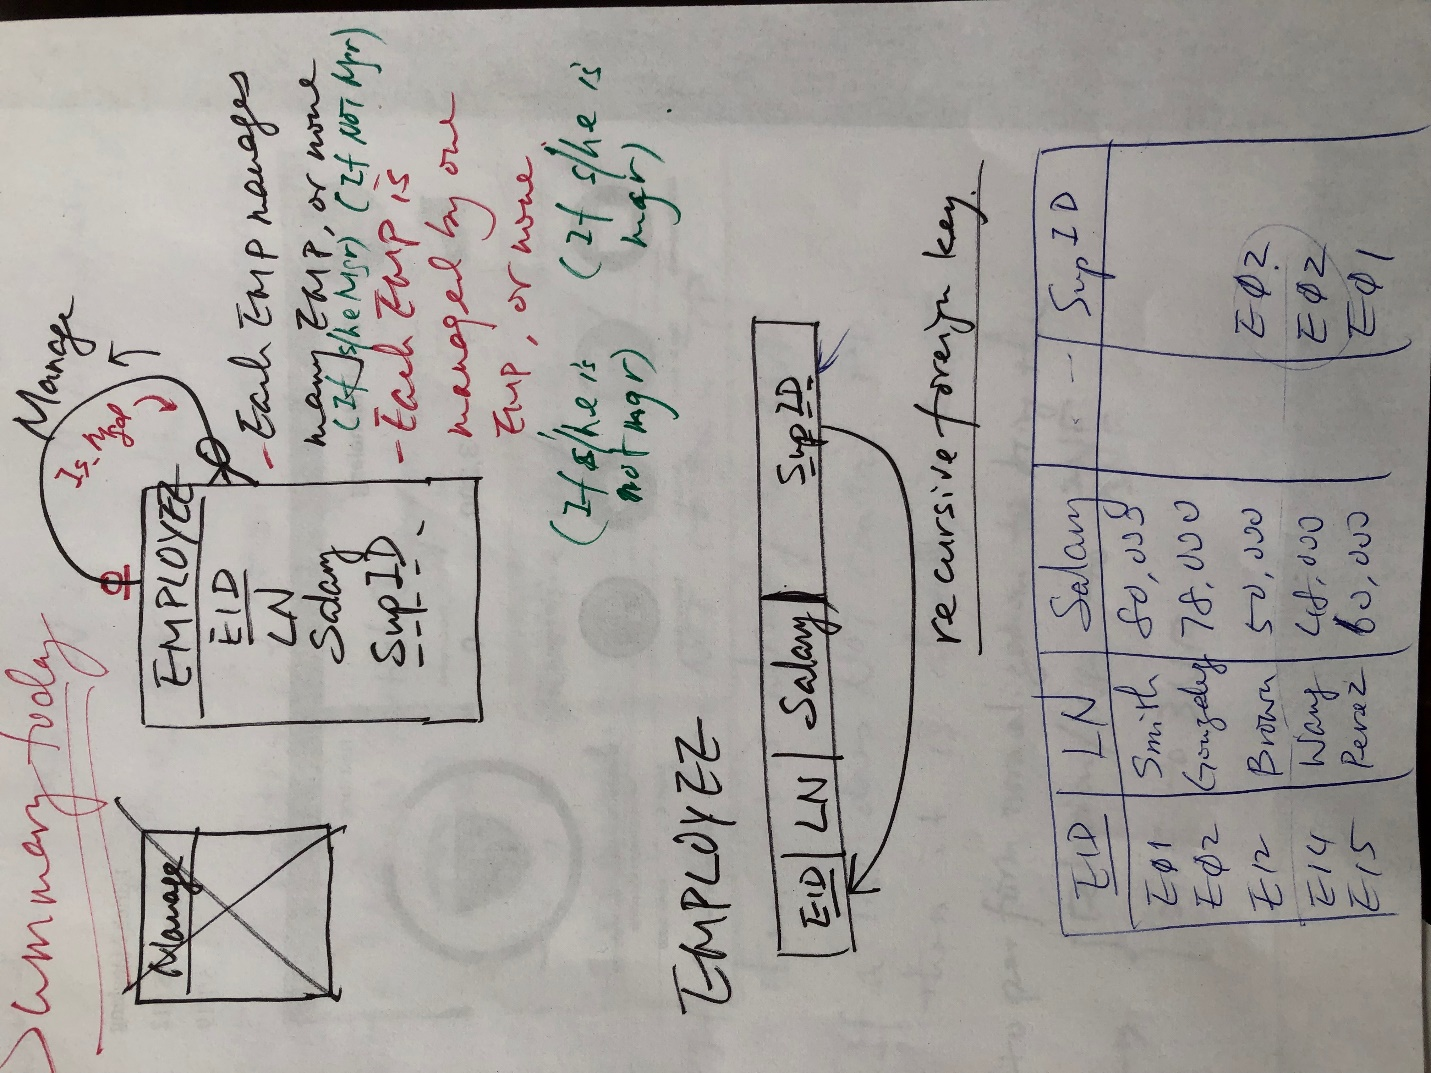 Summary today
Manage
Manage
EMPLOYEE
EID
LN
Salary
SupID
- Each EMP manages
many EMP, or none
(If s/he Mgr) (If NOT Mgr)
- Each EMP is
managed by one
EMP, or none
(If s/he is
not mgr)
(If s/he is
mgr)
EMPLOYEE
EID LN Salary SupID
recursive foreign key.
EID LN Salary -- SupID
EØ1 Smith 80,000
EØ2 78,000
E12 Brown 50,000 EØ2
E14 Wang 48,000 EØ2
E15 Perez 60,000 EØ1